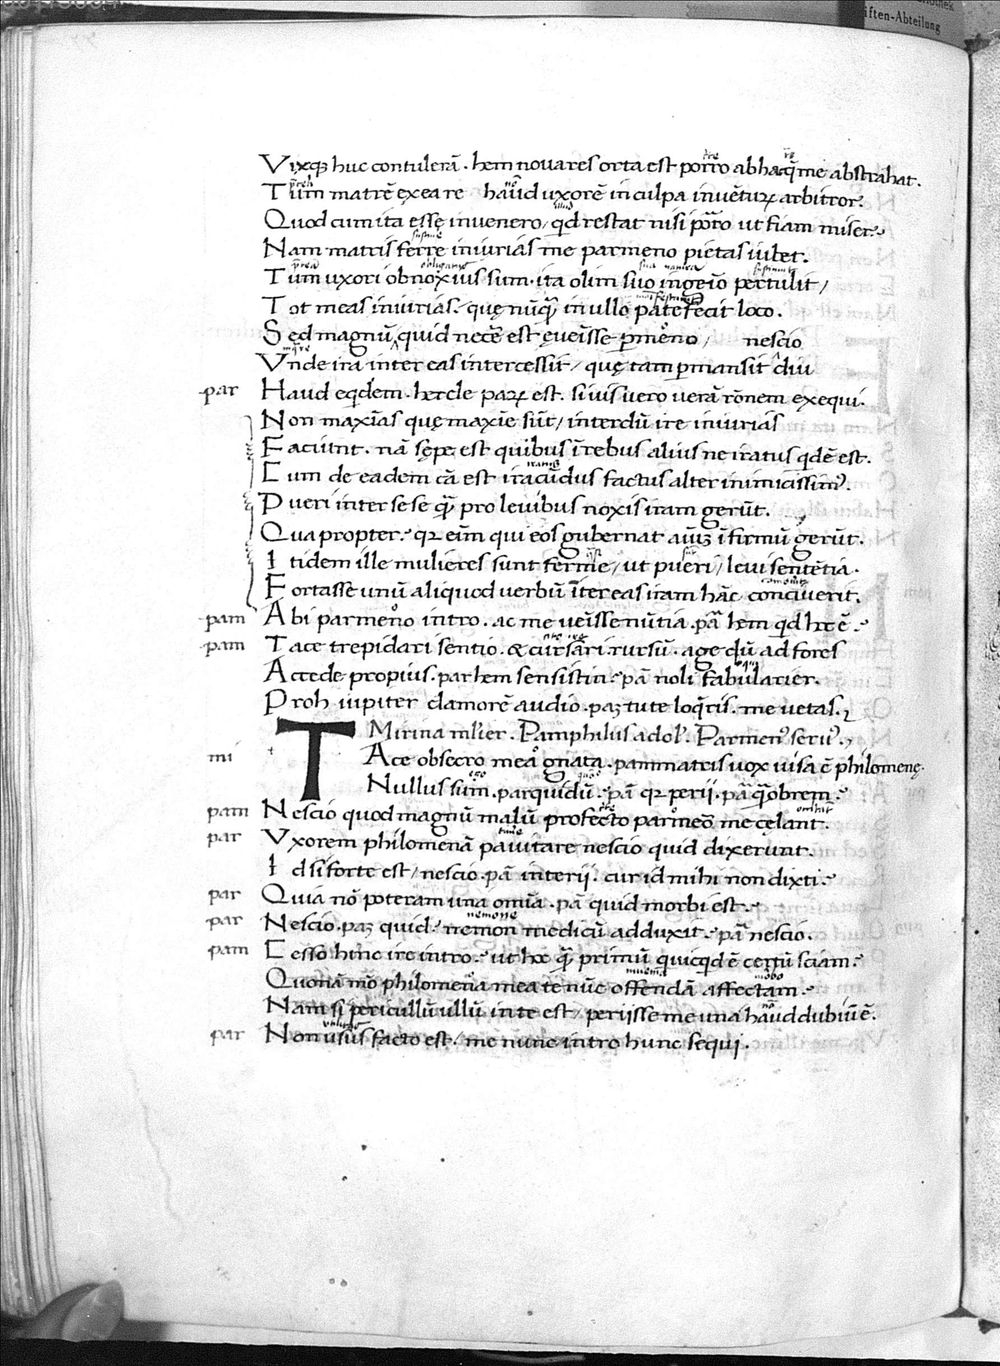 iften-Abteilung
Vixq; huc contulerā. hem nova res orta est porro ab hac q̄ me abstrahat.
Tum matrē ex ea re haud uxorē in culpa invētuꝝ arbitror.
Quod cum ita esse invenero, qd restat nisi porro ut fiam miser.
Nam matris ferre iniurias me parmeno pietas iubet.
Tum uxori obnoxius sum. ita olim suo ingeio pertulit,
Tot meas iniurias. quę nūq̄ in ullo patefecit loco.
Sed magnū quid necē est eveisse parmeno, nescio
Unde ira inter eas intercessit, quę tam permansit diu
par Haud eqdem hercle paꝝ est. si vis vero verā rōnem exequi.
Non maxias quę maxie sūt, interdū ire iniurias
Faciunt. nā sępe est quibus ī rebus alius ne iratus qdē est.
Cum de eadem cā est iracūdus factus alter inimicissim9.
Pueri inter sese q̄ pro levibus noxis iram gerūt.
Qua propter. qꝛ eūm qui eos gubernat aiuꝫ īfirmū gerūt.
Itidem ille mulieres sunt ferme, ut pueri, levi sentētia.
Fortasse unū aliquod verbū īter eas iram hāc conciverit.
pam Abi parmeno intro. ac me venisse nūtia. pā hem qd hoc ē.
pam Tace trepidari sentio. & cursari rursū. age dū ad fores
Accede propius. par hem sensistin. pā noli fabularier.
Proh iupiter clamorē audio. paꝫ tute loqris. me vetas.
Mirina ml'ier. Pamphilus adol'. Parmen9 serv9.
mi TAce obsecro mea gnata. pam matris vox visa ē philomenę.
Nullus sum. par quidū. pā qꝛ perii. pā q̄obrem.
pam Nescio quod magnū malū profecto parmeno me celant.
par Uxorem philomenā pavitare nescio quid dixerunt.
Id si forte est, nescio. pā interii. cur id mihi non dixti.
par Quia nō poteram una omīa. pā quid morbi est.
par Nescio. paꝫ quid. nemon medicū adduxit. pā nescio.
pam Cesso hinc ire intro. ut hoc q̄ primū quicqd ē certū sciam.
Quonā mō philomena mea te nūc offendā affectam.
Nam si pericullū ullū in te est, periisse me una haud dubiū ē.
par Non usus facto est, me nunc intro hunc sequi.